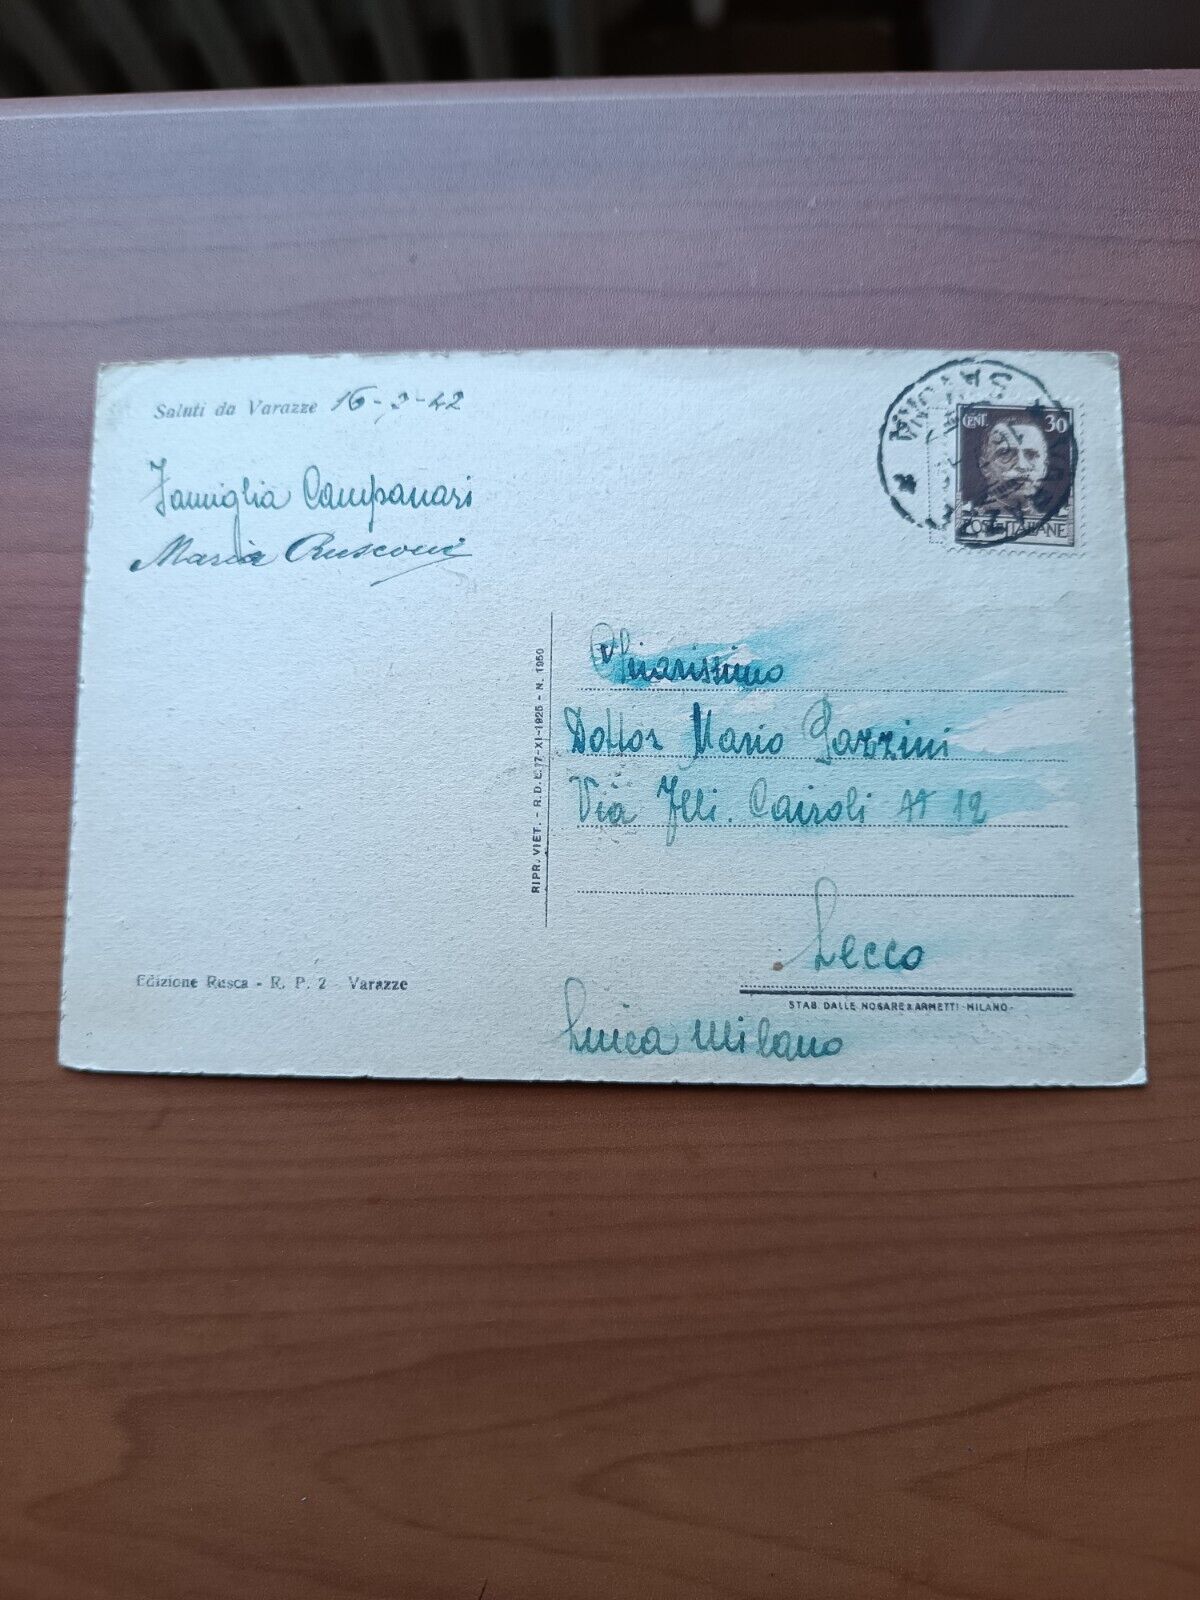 Saluti da Varazze 16-2-42
Famiglia Campanari
Maria Rusconi
CENT. 30
POSTE ITALIANE
SAVONA
RIPR. VIET. - R.D.L. 17-XI-1925 - N. 1950
Chiarissimo
Dottor Mario Pazzini
Via Flli. Cairoli N 12
Lecco
STAB. DALLE NOGARE & ARMETTI - MILANO-
Edizione Rusca - R. P. 2 - Varazze
Milano